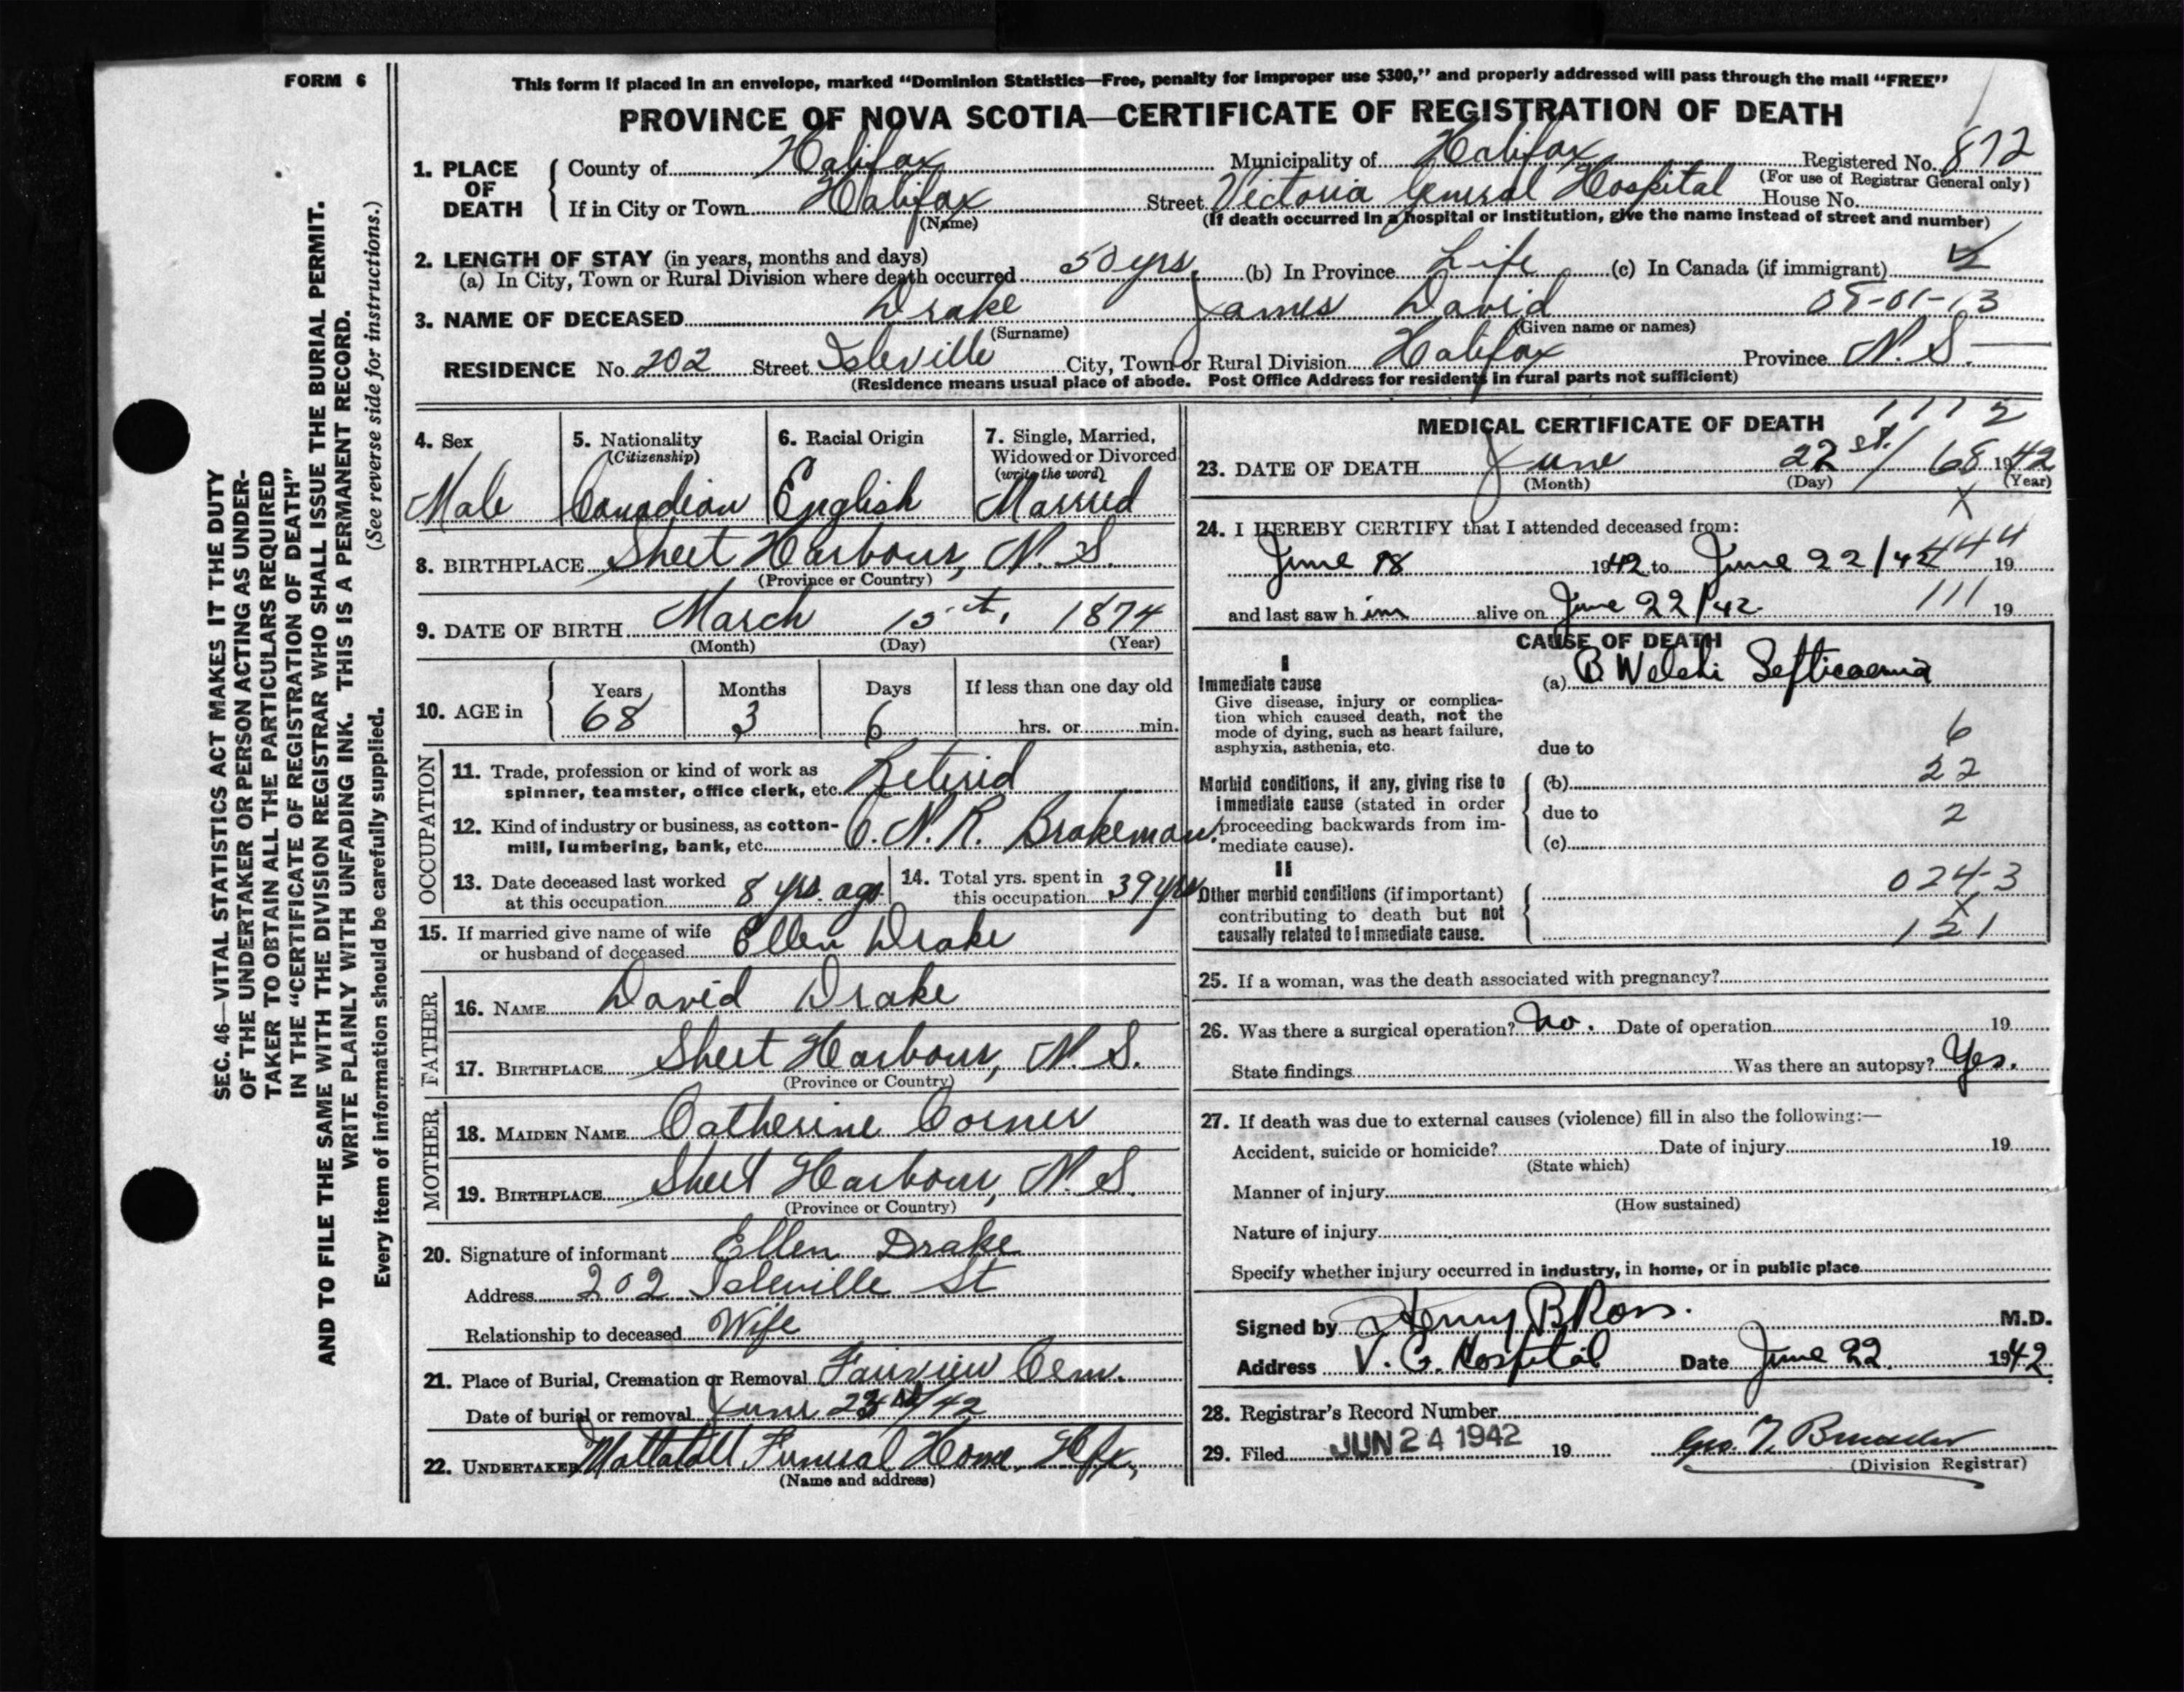 FORM 6
This form if placed in an envelope, marked "Dominion Statistics—Free, penalty for improper use $300," and properly addressed will pass through the mail "FREE"
PROVINCE OF NOVA SCOTIA—CERTIFICATE OF REGISTRATION OF DEATH
SEC. 46—VITAL STATISTICS ACT MAKES IT THE DUTY
OF THE UNDERTAKER OR PERSON ACTING AS UNDER-
TAKER TO OBTAIN ALL THE PARTICULARS REQUIRED
IN THE "CERTIFICATE OF REGISTRATION OF DEATH"
AND TO FILE THE SAME WITH THE DIVISION REGISTRAR WHO SHALL ISSUE THE BURIAL PERMIT.
WRITE PLAINLY WITH UNFADING INK. THIS IS A PERMANENT RECORD.
Every item of information should be carefully supplied. (See reverse side for instructions.)
1. PLACE OF DEATH County of Halifax Municipality of Halifax Registered No. 872
(For use of Registrar General only)
If in City or Town Halifax Street Victoria General Hospital House No.
(Name) (If death occurred in a hospital or institution, give the name instead of street and number)
2. LENGTH OF STAY (in years, months and days)
(a) In City, Town or Rural Division where death occurred 50 yrs. (b) In Province Life (c) In Canada (if immigrant)
3. NAME OF DECEASED Drake James David 08-01-13
(Surname) (Given name or names)
RESIDENCE No. 202 Street Isleville City, Town or Rural Division Halifax Province N.S.
(Residence means usual place of abode. Post Office Address for residents in rural parts not sufficient)
4. Sex 5. Nationality (Citizenship) 6. Racial Origin 7. Single, Married, Widowed or Divorced (write the word)
Male Canadian English Married
8. BIRTHPLACE Sheet Harbour, N.S.
(Province or Country)
9. DATE OF BIRTH March 15th, 1874
(Month) (Day) (Year)
10. AGE in Years Months Days If less than one day old
68 3 6 hrs. or min.
OCCUPATION
11. Trade, profession or kind of work as
spinner, teamster, office clerk, etc. Retired
12. Kind of industry or business, as cotton-
mill, lumbering, bank, etc. C.N.R. Brakeman.
13. Date deceased last worked
at this occupation 8 yrs. ago
14. Total yrs. spent in
this occupation 39 yrs
15. If married give name of wife
or husband of deceased Ellen Drake
FATHER
16. NAME David Drake
17. BIRTHPLACE Sheet Harbour, N.S.
(Province or Country)
MOTHER
18. MAIDEN NAME Catherine Corner
19. BIRTHPLACE Sheet Harbour, N.S.
(Province or Country)
20. Signature of informant Ellen Drake
Address 202 Isleville St
Relationship to deceased Wife
21. Place of Burial, Cremation or Removal Fairview Cem.
Date of burial or removal June /42
22. UNDERTAKER Mattatall Funeral Home, Hfx,
(Name and address)
MEDICAL CERTIFICATE OF DEATH 1 1 1 2
23. DATE OF DEATH June 22 st. / 68 1942
(Month) (Day) (Year)
X
24. I HEREBY CERTIFY that I attended deceased from:
444
June 18 1942 to June 22/42 19
and last saw h im alive on June 22/42. 111 19
CAUSE OF DEATH
I
Immediate cause
Give disease, injury or complica-
tion which caused death, not the
mode of dying, such as heart failure,
asphyxia, asthenia, etc.
(a) B Welchi Septicaemia
6
due to
Morbid conditions, if any, giving rise to
immediate cause (stated in order
proceeding backwards from im-
mediate cause).
(b) 22
due to 2
(c)
II
Other morbid conditions (if important)
contributing to death but not
causally related to immediate cause.
024-3
X
151
25. If a woman, was the death associated with pregnancy?
26. Was there a surgical operation? No. Date of operation 19
State findings Was there an autopsy? Yes.
27. If death was due to external causes (violence) fill in also the following:—
Accident, suicide or homicide? Date of injury 19
(State which)
Manner of injury
(How sustained)
Nature of injury
Specify whether injury occurred in industry, in home, or in public place
Signed by Henry B Ross. M.D.
Address V. G. Hospital Date June 22. 1942
28. Registrar's Record Number
29. Filed JUN 24 1942 19
(Division Registrar)